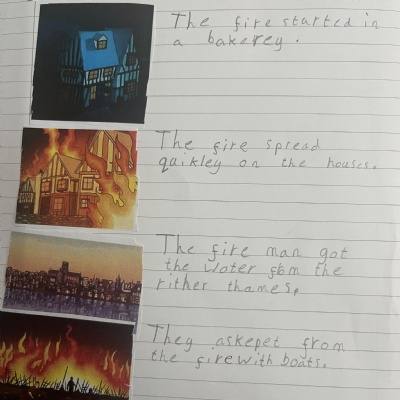 The fire started in
a bakerey.
The fire spread
quikley on the houses.
The fire man got
the water fom the
rither thames.
They askepet from
the fire with boats.